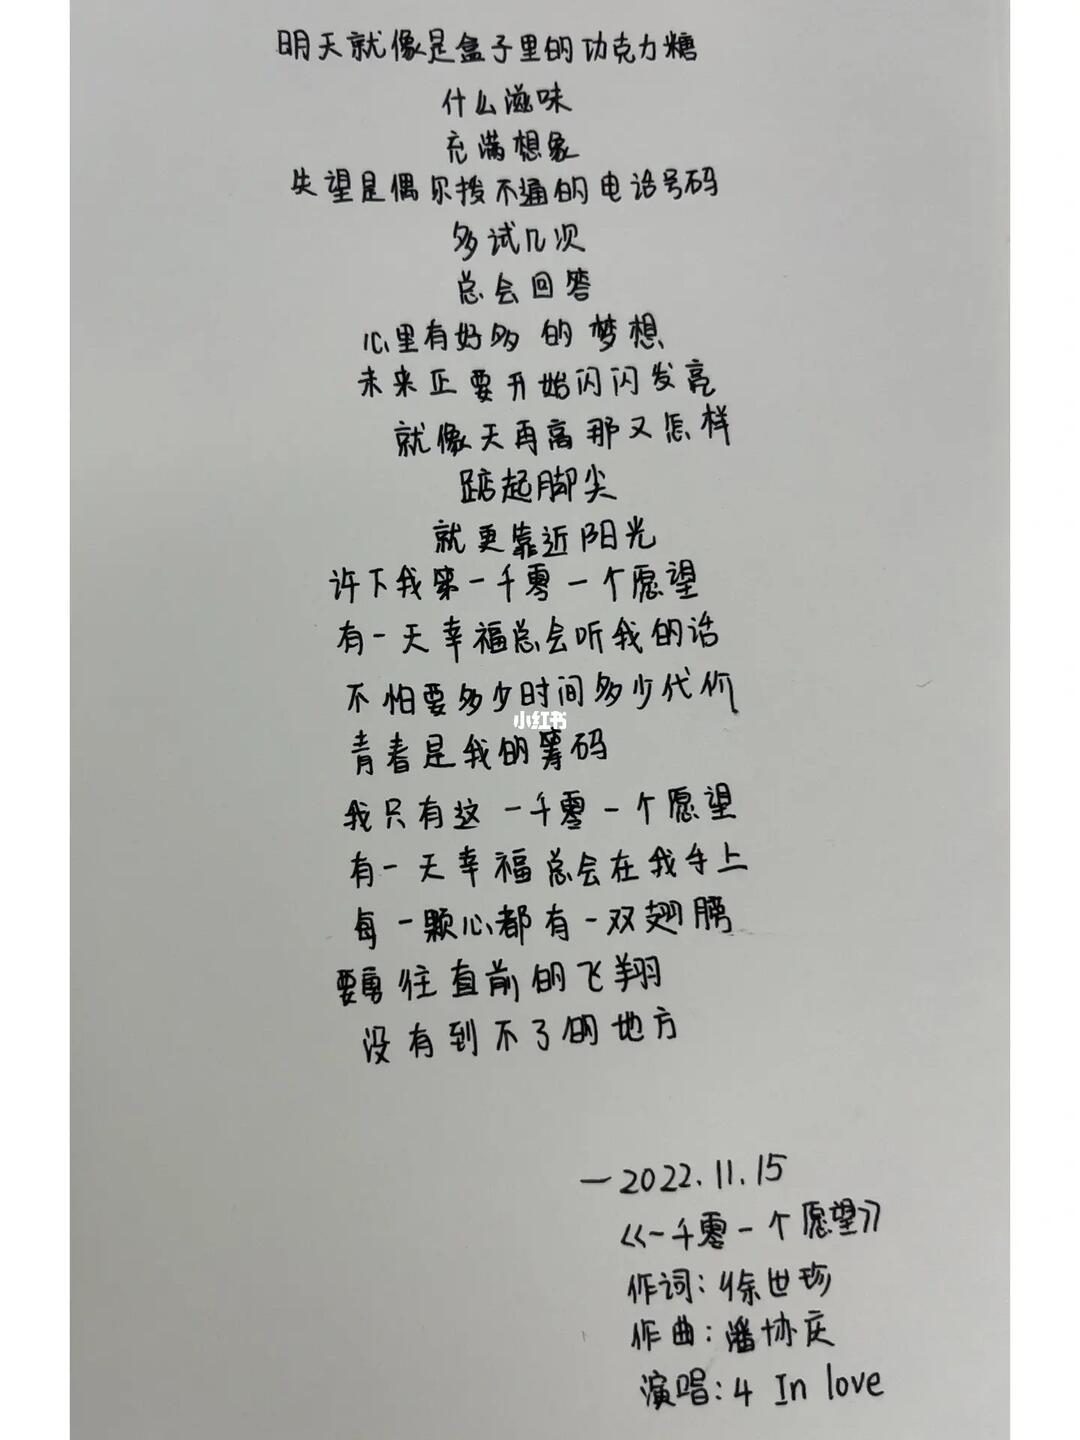 明天就像是盒子里的功克力糖
什么滋味
充满想象
失望是偶尔拨不通的电话号码
多试几次
总会回答
心里有好多的梦想
未来正要开始闪闪发亮
就像天再高那又怎样
踮起脚尖
就更靠近阳光
许下我第一千零一个愿望
有一天幸福总会听我的话
不怕要多少时间多少代价
小红书
青春是我的筹码
我只有这一千零一个愿望
有一天幸福总会在我手上
每一颗心都有一双翅膀
要勇往直前的飞翔
没有到不了的地方
一2022.11.15
《一千零一个愿望》
作词:徐世珍
作曲:潘协庆
演唱:4 In love